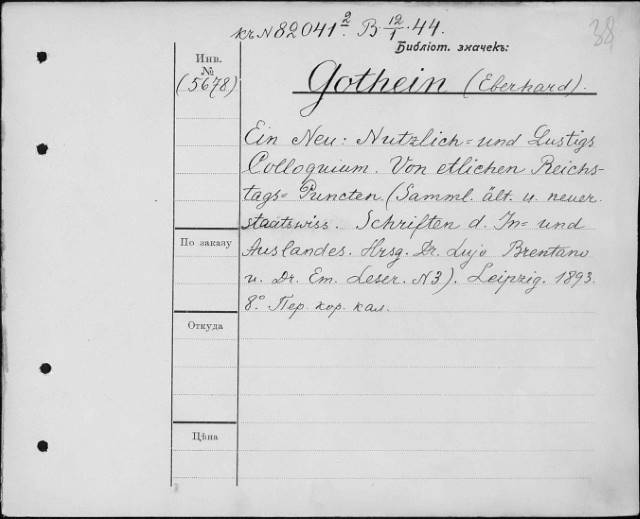 38
кr N 82041². В 12/I. 44.
Библіот. значекъ:
Инв.
№
(5678)
Gothein (Eberhard).
Ein Neu: Nutzlich= und Lustigs
Colloquium. Von etlichen Reichs-
tags= Puncten. (Samml. ält. u. neuer.
staatswiss. Schriften d. In= und
Auslandes. Hrsg. Dr. Lujo Brentano
u. Dr. Em. Leser. N 3). Leipzig. 1893.
8.º Пер. кор. кал.
По заказу
Откуда
Цѣна